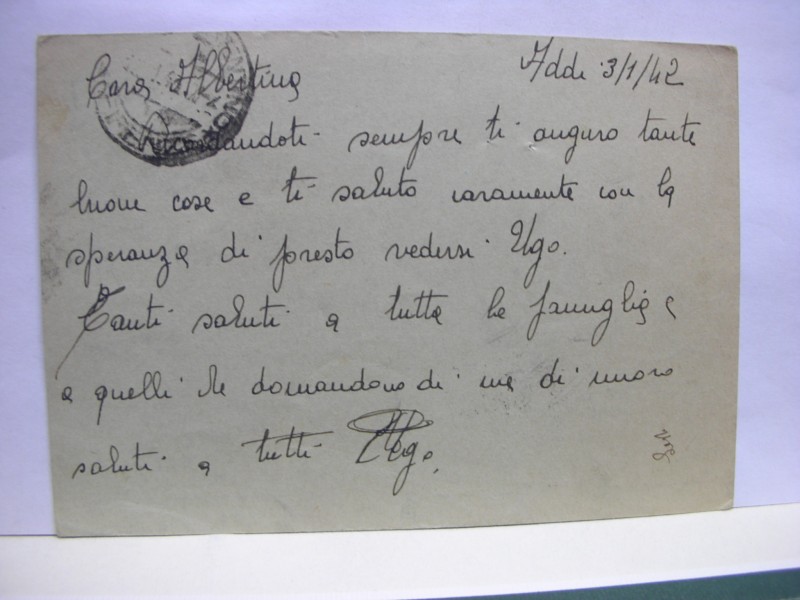 Cara Albertina
Addi 3/1/42
ricordandoti sempre ti auguro tante
buone cose e ti saluto caramente con la
speranza di presto vedersi Ugo.
Tanti saluti a tutta la famiglia e
a quelli che domandono di me di nuovo
saluti a tutti Ugo.